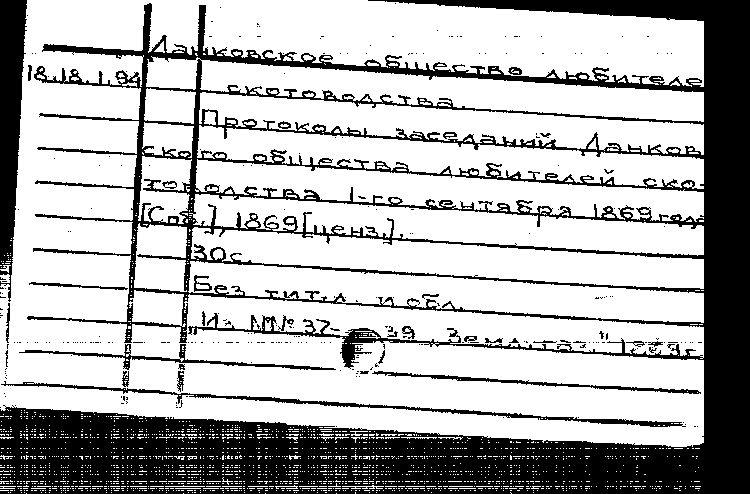 Данковское общество любителе
18.18.1.94
скотоводства.
Протоколы заседаний Данков
ского общества любителей ско-
товодства 1-го сентября 1869 года
[Спб.], 1869 [ценз.].
30 с.
Без тит. л. и обл.
„Из №№ 37- 39 „Земл. газ." 1869 г